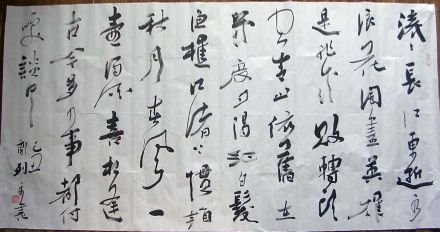 滚々長江東逝水
浪花淘盡英雄
是非成敗轉頭
空青山依舊在
幾度夕陽紅白髮
漁樵江渚上慣看
秋月春風一
壺濁酒喜相逢
古今多少事都付
笑談中
己丑